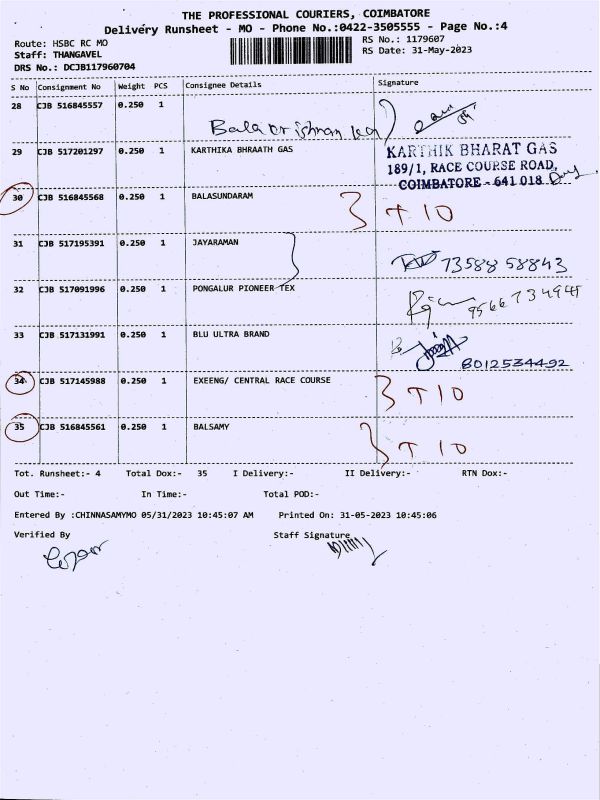 THE PROFESSIONAL COURIERS, COIMBATORE
Delivery Runsheet - MO - Phone No.:0422-3505555 - Page No.:4
Route: HSBC RC MO
RS No.: 1179607
Staff: THANGAVEL
RS Date: 31-May-2023
DRS No.: DCJB117960704
S No Consignment No Weight PCS Consignee Details Signature
28 CJB 516845557 0.250 1
Balakrishnan
29 CJB 517201297 0.250 1 KARTHIKA BHRAATH GAS
KARTHIK BHARAT GAS
189/1, RACE COURSE ROAD,
COIMBATORE - 641 018
30 CJB 516845568 0.250 1 BALASUNDARAM
31 CJB 517195391 0.250 1 JAYARAMAN
73588 58843
32 CJB 517091996 0.250 1 PONGALUR PIONEER TEX
33 CJB 517131991 0.250 1 BLU ULTRA BRAND
8012534492
34 CJB 517145988 0.250 1 EXEENG/ CENTRAL RACE COURSE
35 CJB 516845561 0.250 1 BALSAMY
Tot. Runsheet:- 4 Total Dox:- 35 I Delivery:- II Delivery:- RTN Dox:-
Out Time:- In Time:- Total POD:-
Entered By :CHINNASAMYMO 05/31/2023 10:45:07 AM Printed On: 31-05-2023 10:45:06
Verified By Staff Signature